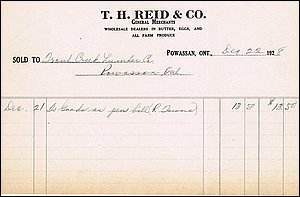 T. H. REID & CO.
GENERAL MERCHANTS
WHOLESALE DEALERS IN BUTTER, EGGS, AND
ALL FARM PRODUCE
POWASSAN, ONT., Dec 22 1928
SOLD TO Trout Creek Lumber Co.
Powassan Ont.
Dec. 21 To Goods as per bill (R. ) 13 50 $ 13.50